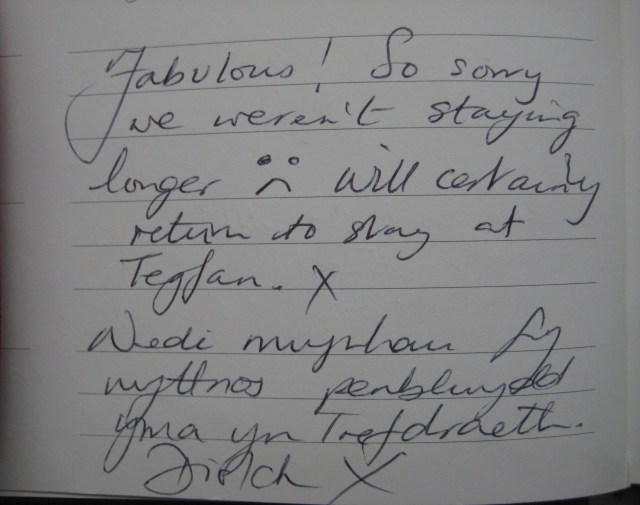 Fabulous! So sorry
we weren't staying
longer :( will certainly
return to stay at
Tegfan. X
Wedi mwynhau fy
wythnos penblwydd
yma yn Trefdraeth.
Diolch X